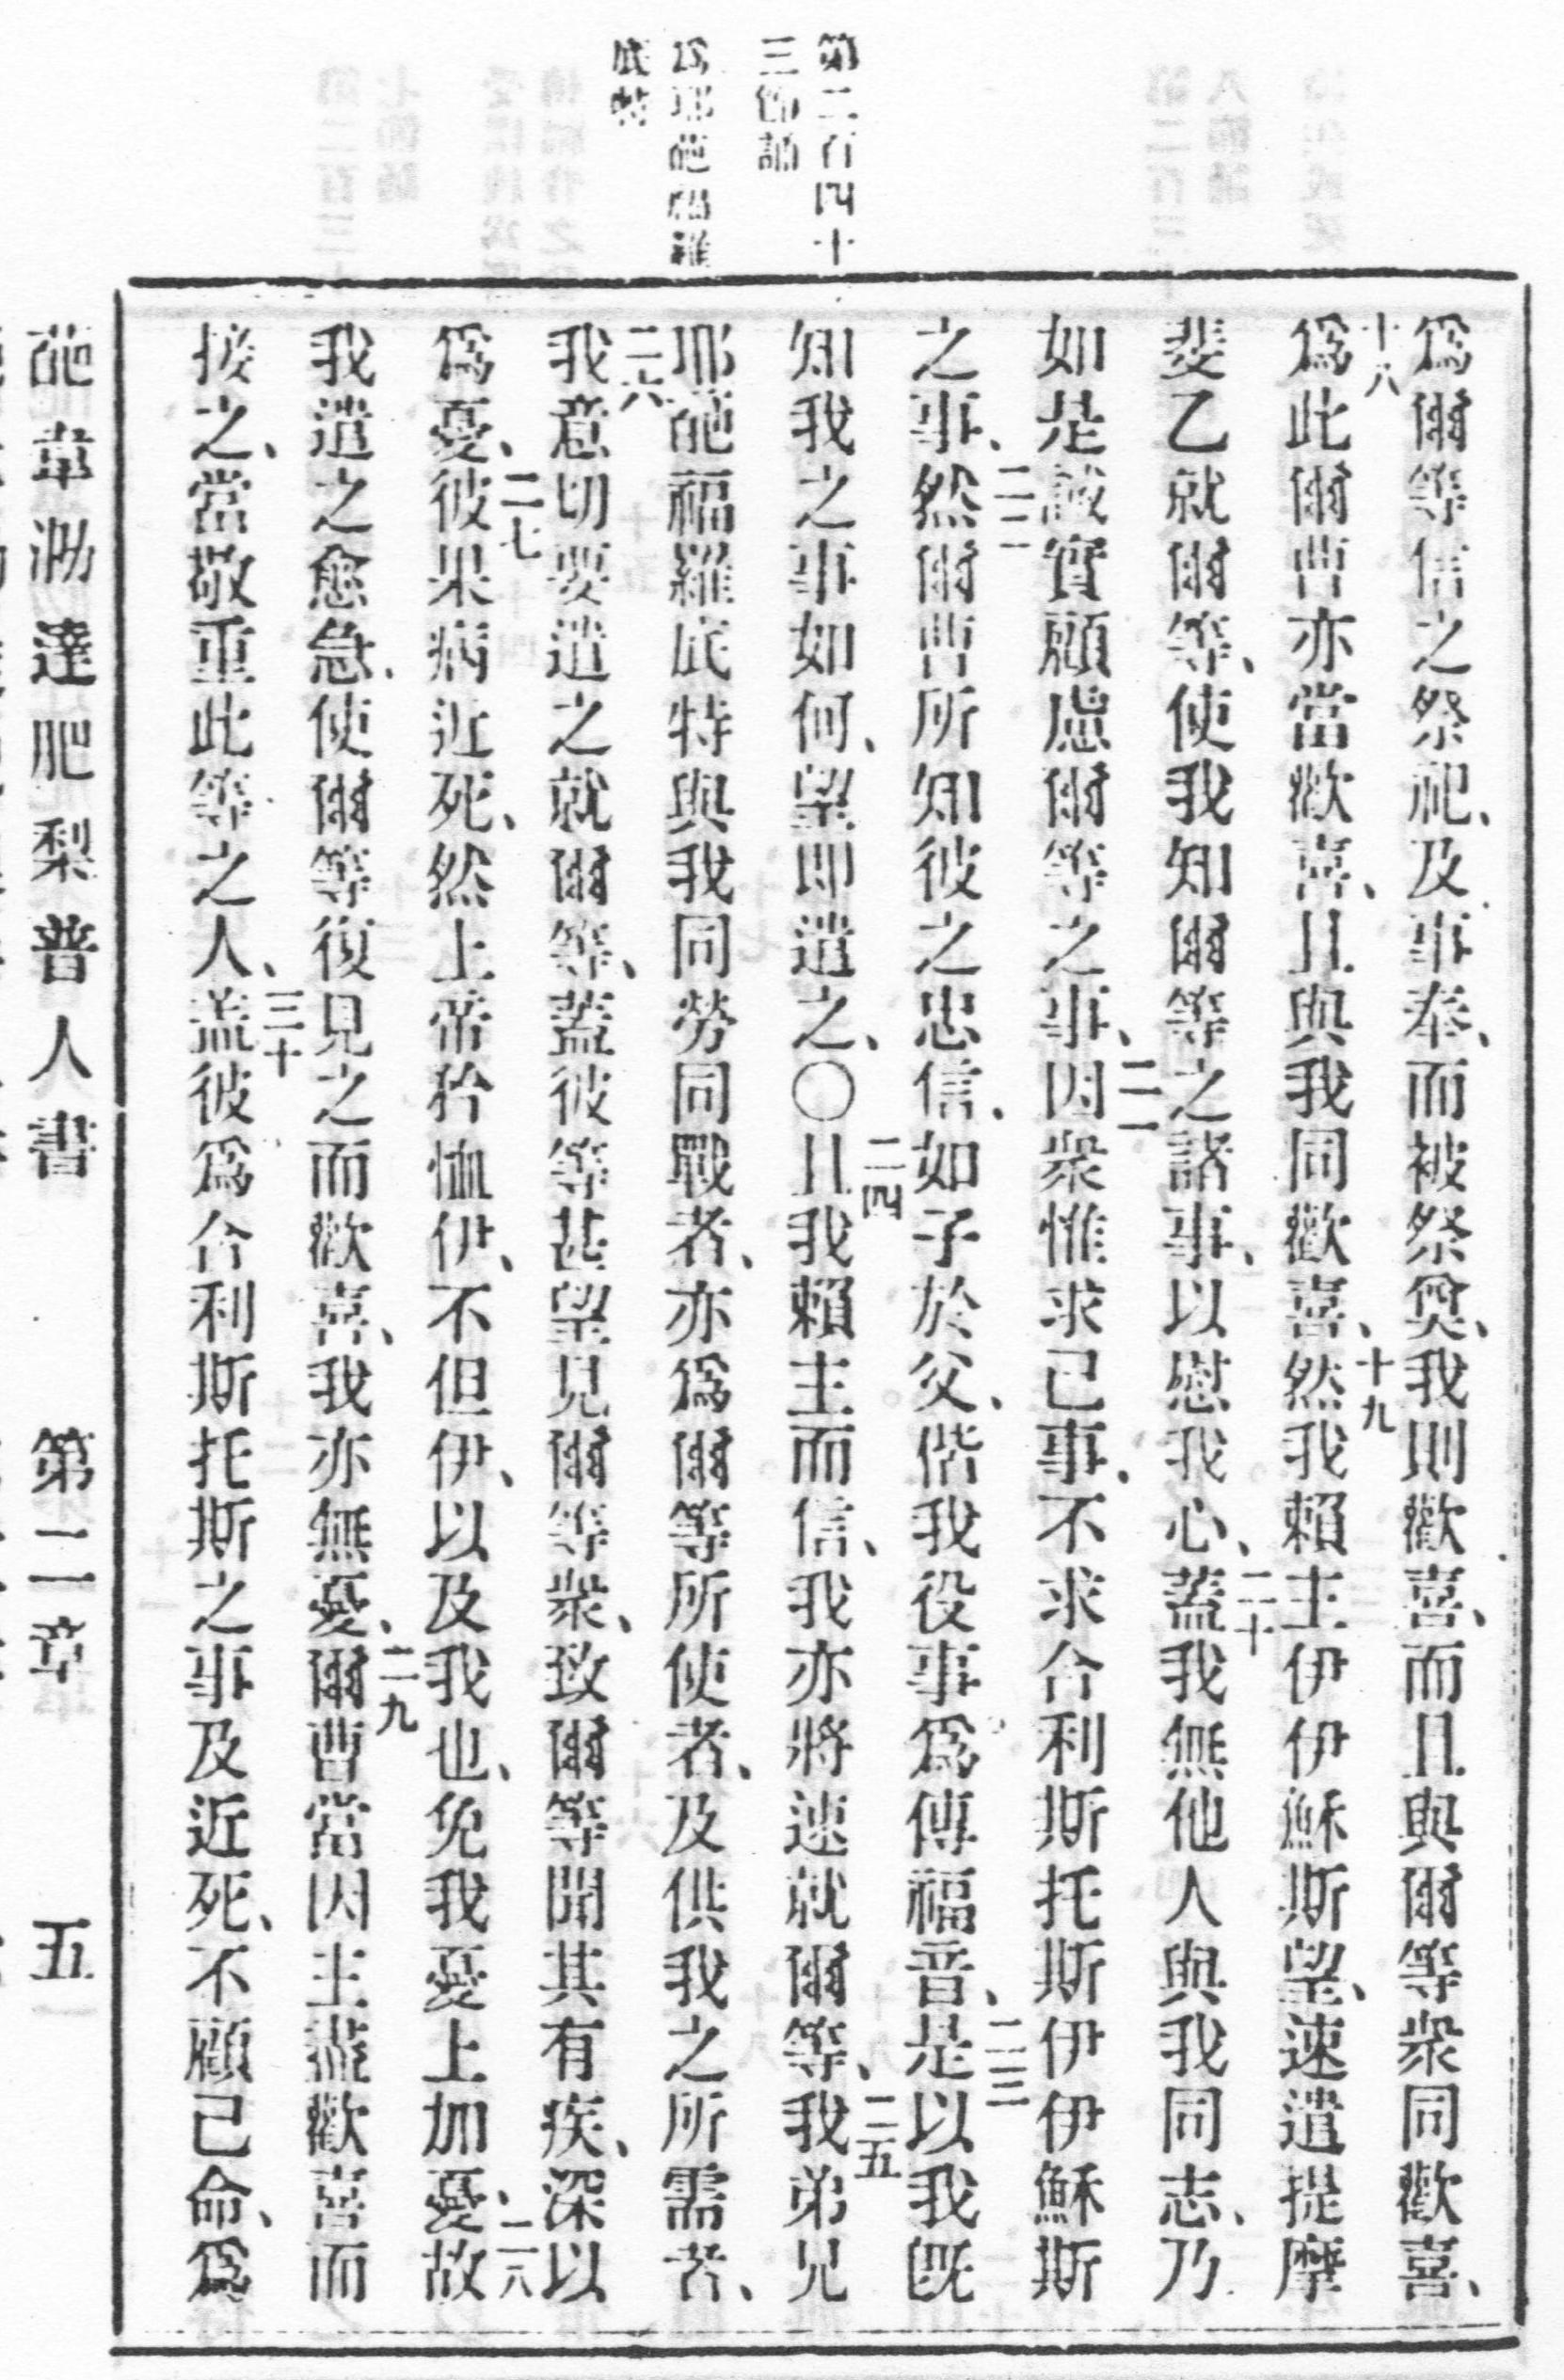 第二百四十
三節誦
爲耶葩福羅
底特
爲爾等信之祭祀、及事奉、而被祭奠、我則歡喜、而且與爾等衆同歡喜、
十八爲此爾曹亦當歡喜、且與我同歡喜、十九然我賴主伊伊穌斯望、速遣提摩
斐乙就爾等、使我知爾等之諸事、以慰我心、二十蓋我無他人與我同志、乃
如是誠實顧慮爾等之事、二一因衆惟求己事、不求合利斯托斯伊伊穌斯
之事、二二然爾曹所知彼之忠信、如子於父、偕我役事爲傳福音、二三是以我既
知我之事如何、望即遣之、〇二四且我賴主而信、我亦將速就爾等、二五我弟兄
耶葩福羅底特與我同勞同戰者、亦爲爾等所使者、及供我之所需者、
二六我意切要遣之就爾等、蓋彼等甚望見爾等衆、致爾等聞其有疾、深以
爲憂、二七彼果病近死、然上帝矜恤伊、不但伊、以及我也、免我憂上加憂、二八故
我遣之愈急、使爾等復見之而歡喜、我亦無憂、二九爾曹當因主盡歡喜而
接之、當敬重此等之人、三十盖彼爲合利斯托斯之事及近死、不顧己命、爲
葩韋泐達肥梨普人書　第二章　五